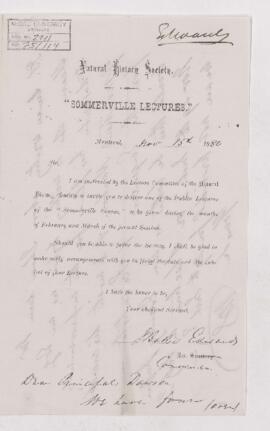 Edwards
ARCHIVES
Natural History Society.
"SOMMERVILLE LECTURES."
Montreal, Nov 15th 1880
Sir,
I am instructed by the Lecture Committee of the Natural
History Society to invite you to deliver one of the Public Lectures
of the "Sommerville Course," to be given during the months
of February and March of the present Session.
Should you be able to favor me, I shall be glad to
make early arrangements with you to
of your Lecture.
I have the honor to be,
Your obedient Servant,
Baker Edwards
Dear Principal Dawson
We have four
(over)